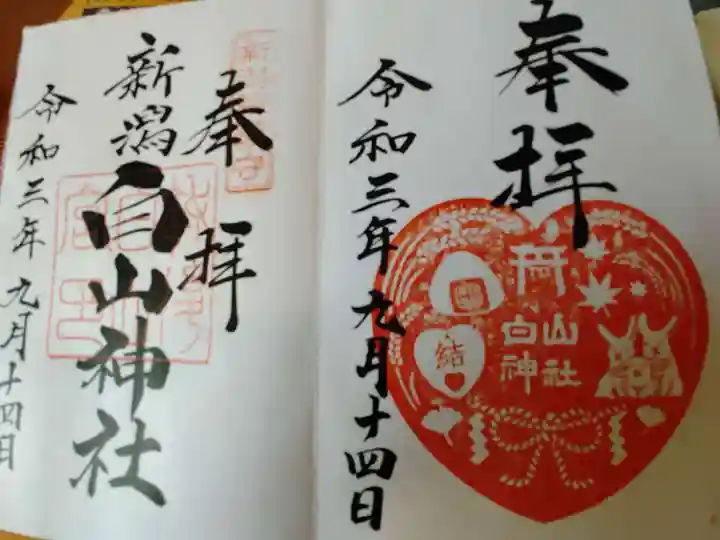 奉拝
令和三年九月十四日
結
白山
神社
奉拝
新潟白山神社
令和三年九月十四日